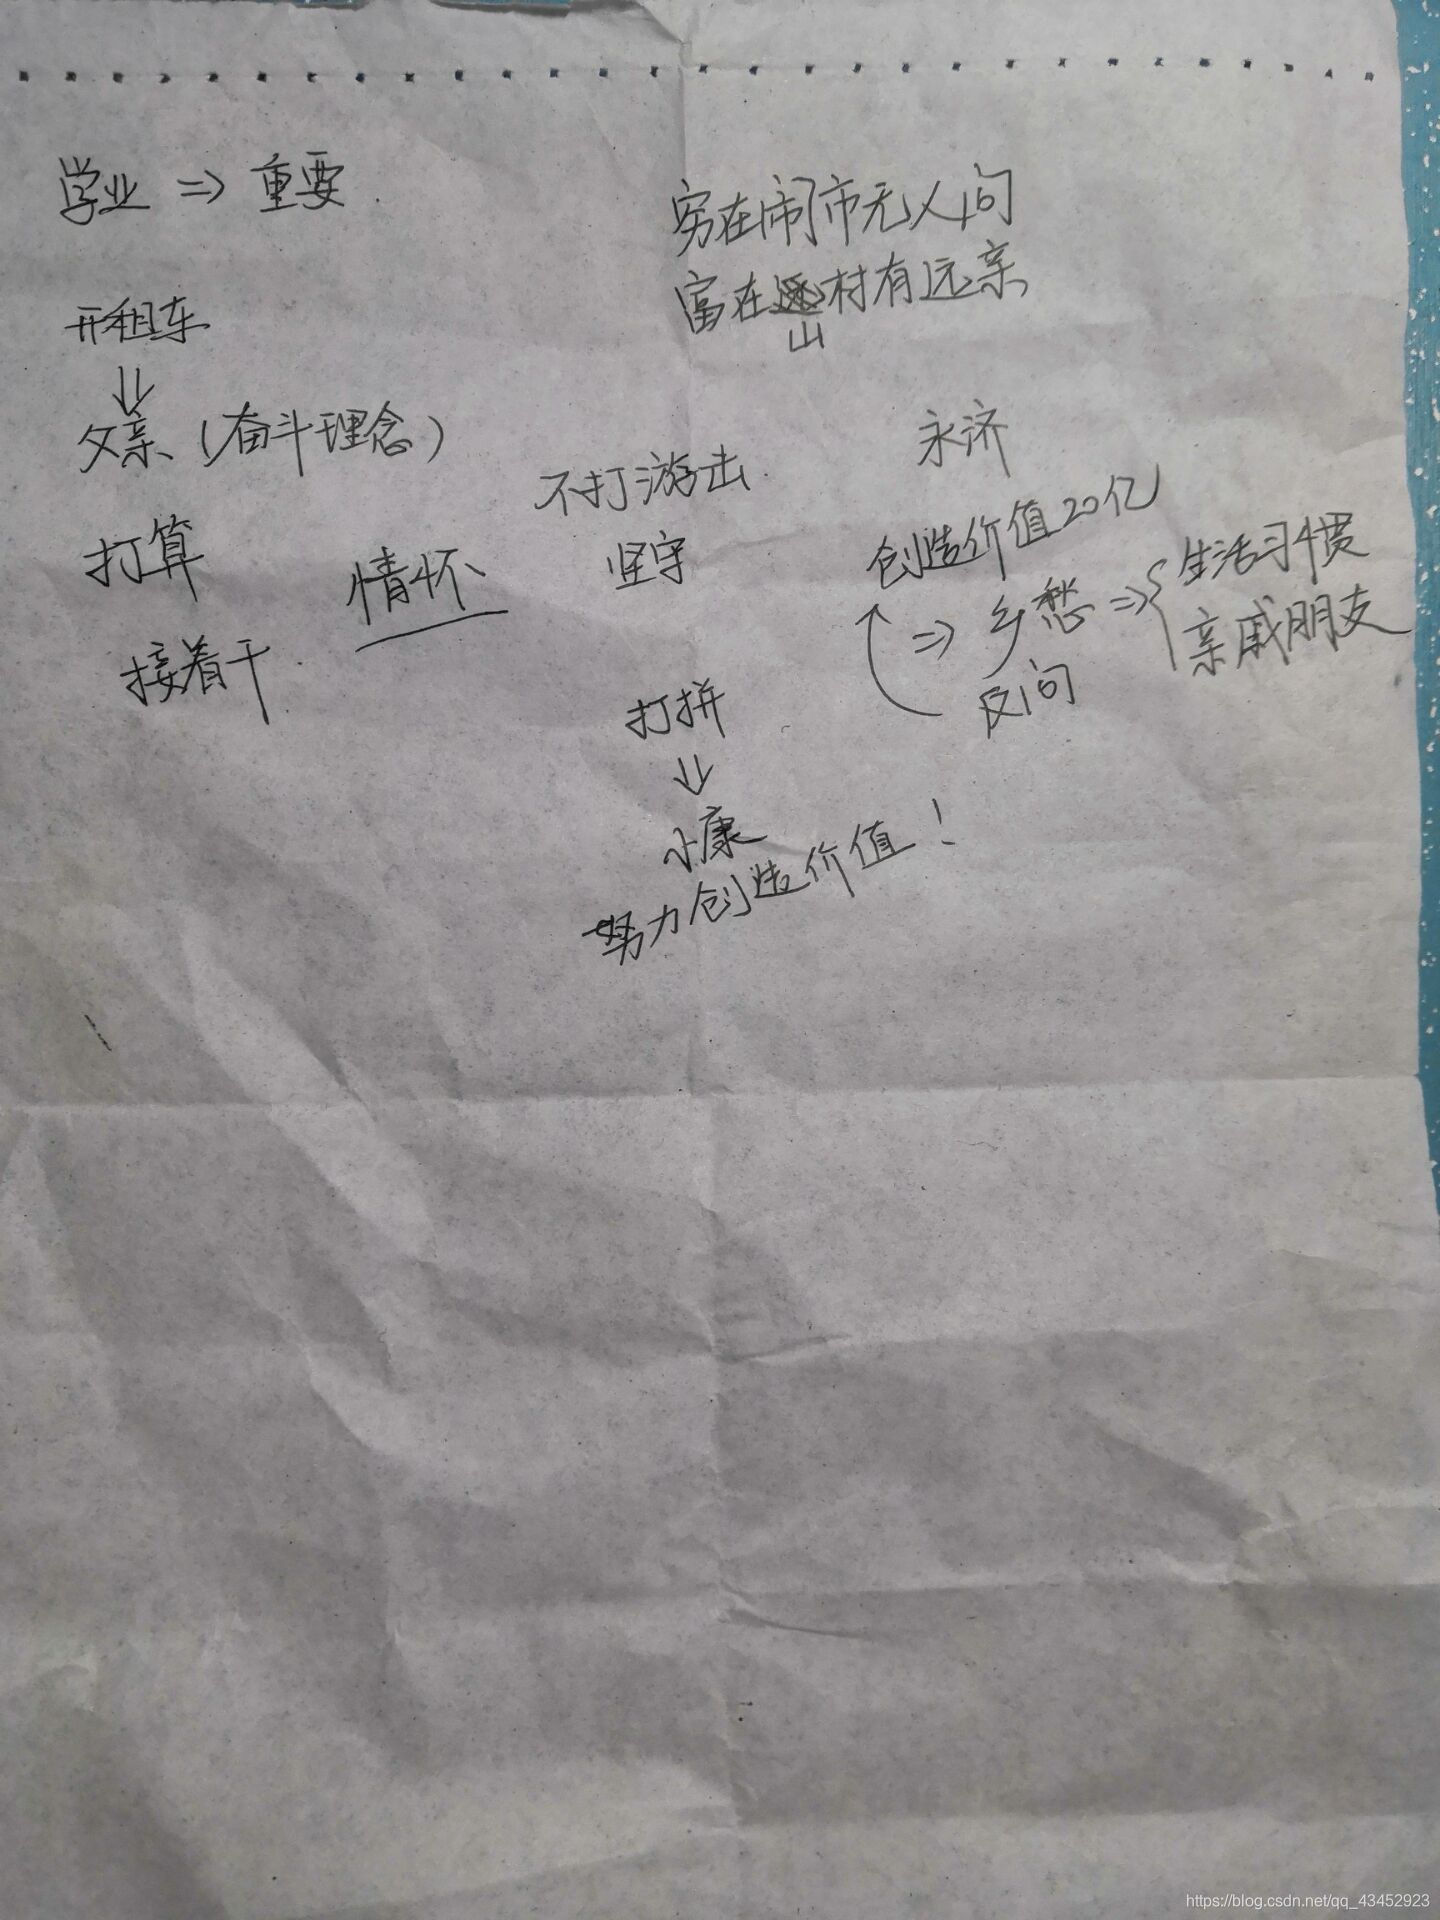 学业 => 重要
穷在闹市无人问
富在山村有远亲
开租车
父亲（奋斗理念）
打算
接着干
情怀
不打游击
坚守
永济
创造价值20亿
=> 乡愁 => { 生活习惯
亲戚朋友
反问
打拼
小康
努力创造价值！
https://blog.csdn.net/qq_43452923